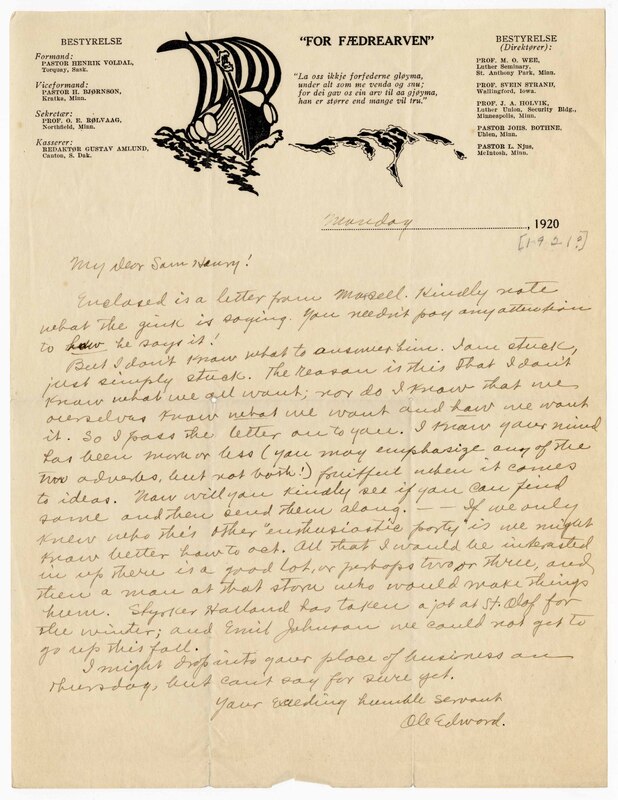 BESTYRELSE
Formand:
PASTOR HENRIK VOLDAL,
Torquay, Sask.
Viceformand:
PASTOR H. BJØRNSON,
Kratka, Minn.
Sekretær:
PROF. O. E. RØLVAAG,
Northfield, Minn.
Kasserer:
REDAKTØR GUSTAV AMLUND,
Canton, S. Dak.
"FOR FÆDREARVEN"
"La oss ikkje forfederne gløyma,
under alt som me venda og snu;
for dei gav os ein arv til aa gjøyma,
han er større end mange vil tru."
BESTYRELSE
(Direktører):
PROF. M. O. WEE,
Luther Seminary,
St. Anthony Park, Minn.
PROF. SVEIN STRAND,
Wallingford, Iowa.
PROF. J. A. HOLVIK,
Luther Union, Security Bldg.,
Minneapolis, Minn.
PASTOR JOHS. BOTHNE,
Ulen, Minn.
PASTOR L. Njus,
McIntosh, Minn.
Monday, 1920
[1921?]
My dear Som Haury!
Enclosed is a letter from Kindly note
what the gink is saying. You needn't pay any attention
to how he says it!
But I don't know what to answer him. I am stuck,
just simply stuck. The reason is this that I don't
know what we all want; nor do I know that we
ourselves know what we want and how we want
it. So I pass the letter on to you. I know your mind
has been more or less (you may emphasize any of the
two adverbs, but not both!) fruitful when it comes
to ideas. Now will you kindly see if you can find
some and then send them along. — — If we only
knew who this other "enthusiastic party" is we might
know better how to act. All that I would be interested
in up there is a good lot, or perhaps two or three, and
then a man at that store who would make things
hum. Styrker Hatland has taken a job at St. Olaf for
the winter; and Emil Johnson we could not get to
go up this fall.
I might drop into your place of business on
Thursday, but can't say for sure yet.
Your humble servant
Ole Edward.